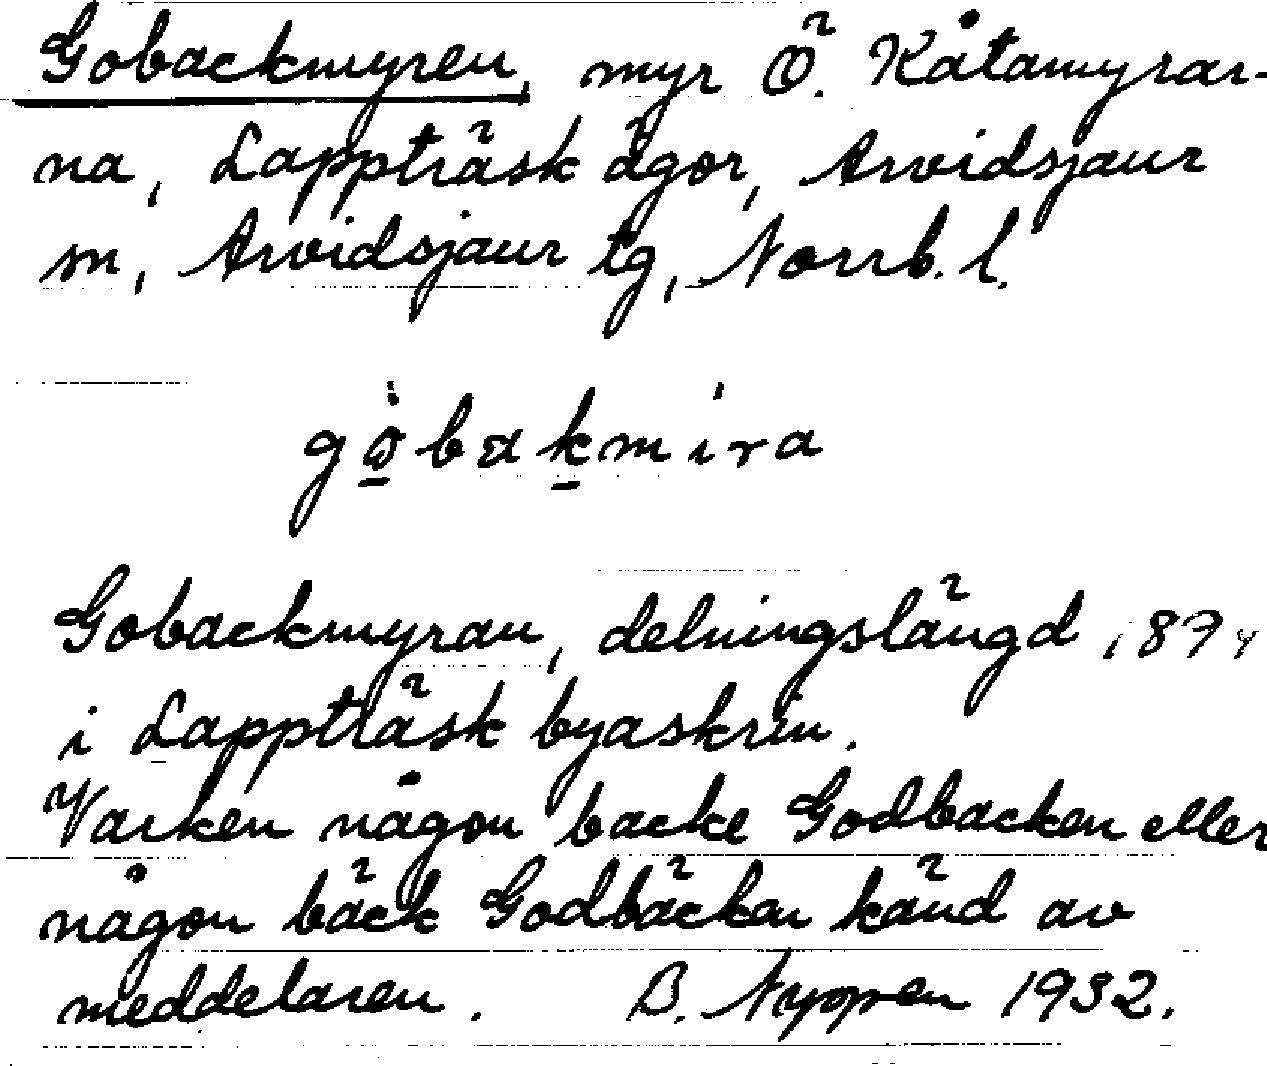 Gobackmyren, myr Ö. Kåtamyrar-
na, Lappträsk ägor, Arvidsjaur
sn, Arvidsjaur tg, Norrb. l.
Gobackmyran, delningslängd 1874
i Lappträsk byaskrin.
Varken någon backe Godbacken eller
någon bäck Godbäcken känd av
meddelaren. B. Nyppen 1932.